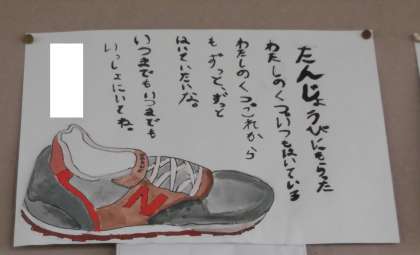 たんじょうびにもらった
わたしのくついつもはいている
わたしのくつこれから
もずっとずっと
はいていたいな。
いつまでもいつまでも
いっしょにいてね。
N